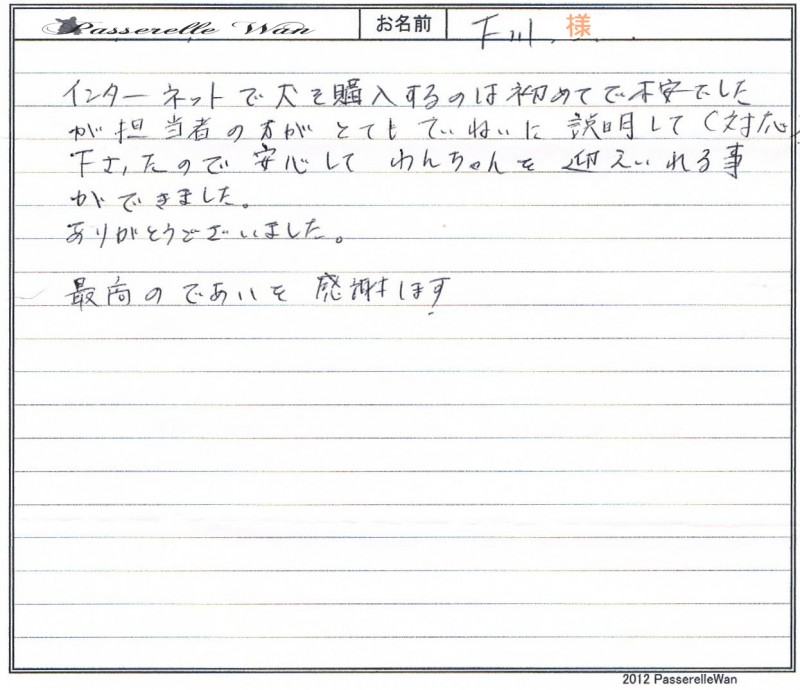 Passerelle Wan お名前 下川 様
インターネットで犬を購入するのは初めてで不安でした
が担当者の方がとてもていねいに説明して(対応)
下さったので安心してわんちゃんを迎えいれる事
ができました。
ありがとうございました。
最高のであいを感謝します
2012 PasserelleWan